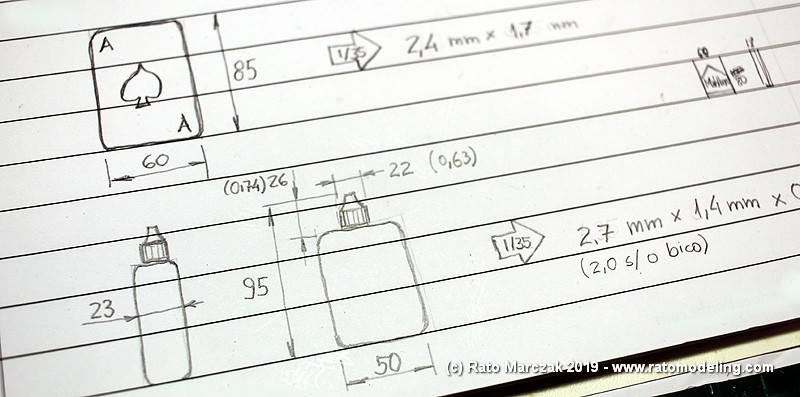 A
A
85
60
1/35
2,4 mm x 1,7 mm
60
80
(0,74) 26
22 (0,63)
23
95
50
1/35
2,7 mm x 1,4 mm x
(2,0 s/ o bico)
(c) Rato Marczak 2019 - www.ratomodeling.com